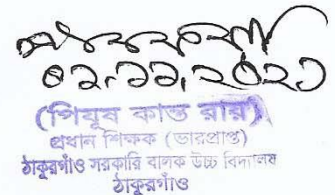 ০২.১১.২০২১
(পিযূষ কান্ত রায়)
প্রধান শিক্ষক (ভারপ্রাপ্ত)
ঠাকুরগাঁও সরকারি বালক উচ্চ বিদ্যালয়
ঠাকুরগাঁও